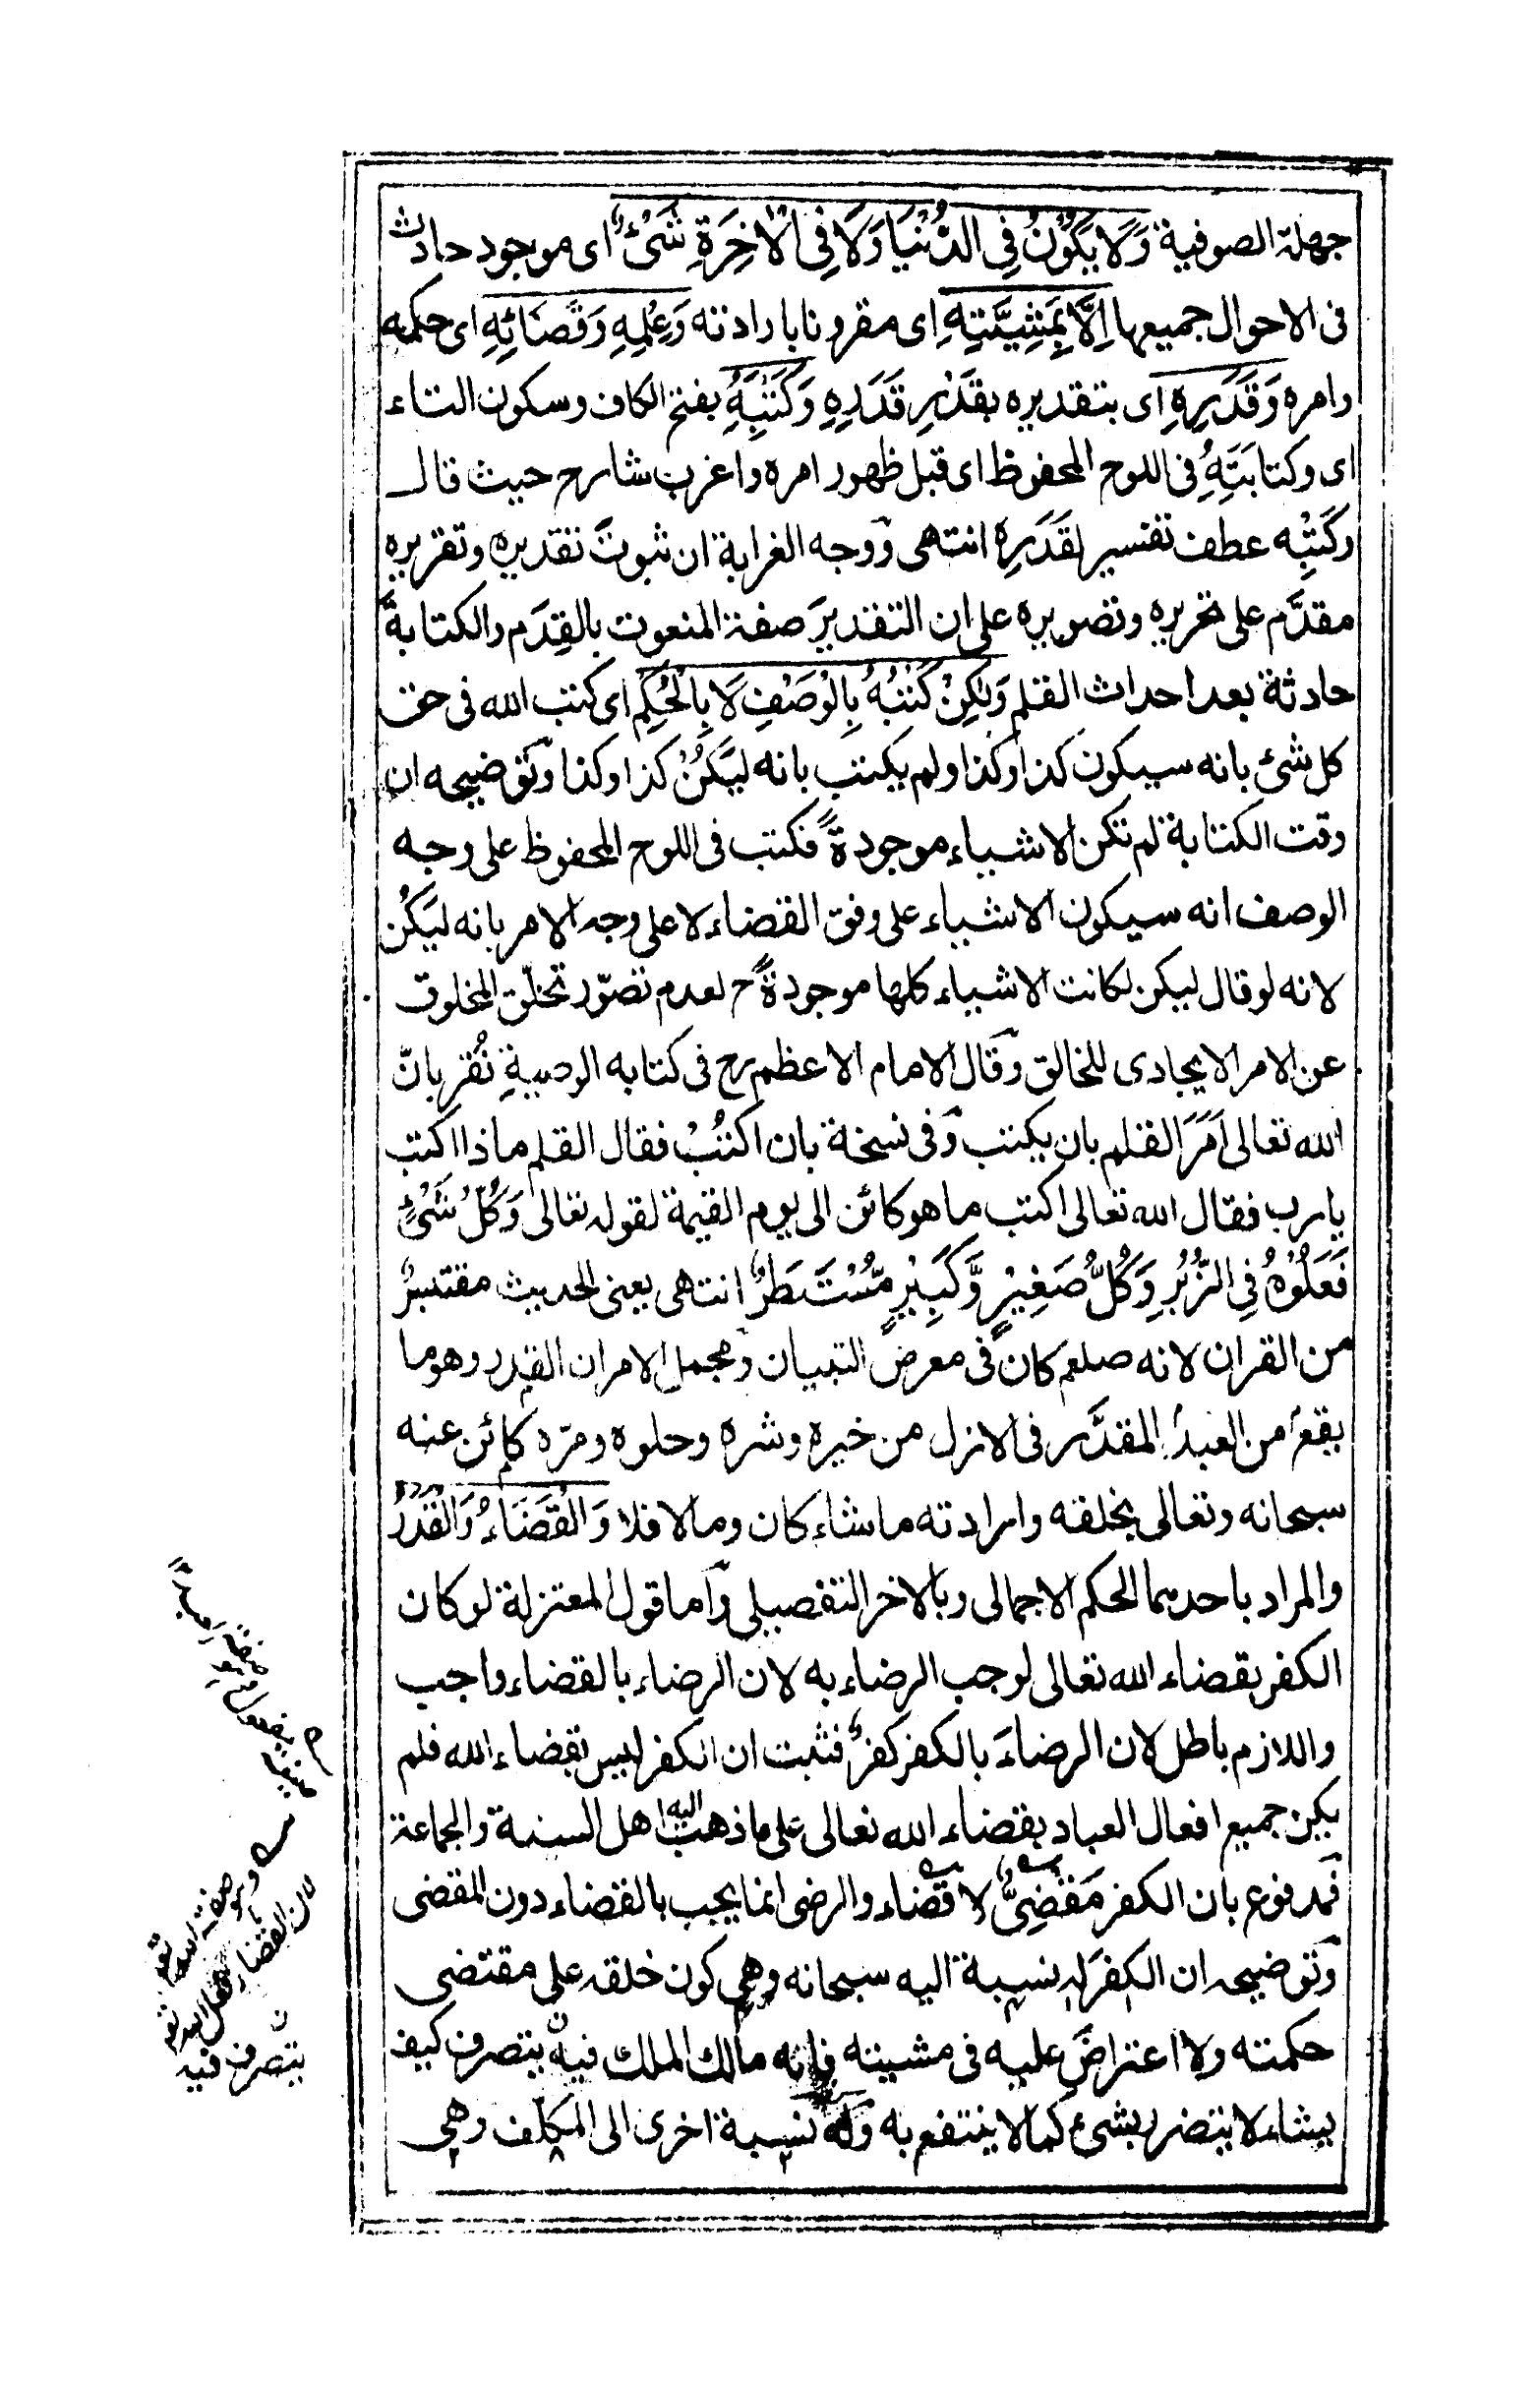 جهلة الصوفية وَلَا يَكُوْنُ فِي الدُّنْيَا وَلَا فِي الْاٰخِرَةِ شَيْءٌ اى موجود حادث
فى الاحوال جميعها اِلَّا بِمَشِيَّتِهِ اى مقرونا بارادته وَعِلْمِهِ وَقَضَائِهِ اى حكمه
وامره وَقَدَرِهِ اى بتقديره بقَدْرِ قَدَرِهِ وَكَتْبِهِ بفتح الكاف وسكون التاء
اى وكتابَتِهِ فى اللوح المحفوظ اى قبل ظهور امره واغرب شارح حيث قال
وكَتْبِه عطف تفسير لقَدَرِهِ انتهى ووجه الغرابة ان ثبوت تقديره وتقريره
مقدَّم على تحريره وتصويره على ان التقديرَ صفة المنعوت بالقِدَم والكتابةَ
حادثة بعد احداث القلم وَلٰكِنْ كَتْبُهُ بِالْوَصْفِ لَا بِالْحُكْمِ اى كتب الله فى حق
كل شئ بانه سيكون كذا وكذا ولم يكتب بانه ليَكُنْ كذا وكذا وتوضيحه ان
وقت الكتابة لم تكن الاشياء موجودةً فكتب فى اللوح المحفوظ على وجه
الوصف انه سيكون الاشياء على وفق القضاء لا على وجه الامر بانه ليَكُن
لانه لو قال ليكن لكانت الاشياء كلها موجودةً ح لعدم تصوّر تخلّق المخلوق
عن الامر الايجادى للخالق وقال الامام الاعظم رح فى كتابه الوصيةِ نُقر بانّ
الله تعالى اَمَرَ القلم بان يكتب وفى نسخة بان اكتُبْ فقال القلم ماذا اكتب
يارب فقال الله تعالى اكتب ما هو كائن الى يوم القيمة لقوله تعالى وَكُلُّ شَيْءٍ
فَعَلُوْهُ فِي الزُّبُرِ وَكُلُّ صَغِيْرٍ وَّكَبِيْرٍ مُّسْتَطَرٌ انتهى يعنى الحديث مقتبسٌ
من القران لانه صلعم كان فى معرض التبيان ومجمل الامر ان القدر وهو ما
يقع من العبد المقدَّر فى الازل من خيره وشره وحلوه ومرّه كائن عنه
سبحانه وتعالى بخلقه وارادته ما شاء كان وما لا فلا وَالْقَضَاءُ وَالْقَدَرُ
والمراد باحدهما الحكم الاجمالى وبالاخر التفصيلى واما قول المعتزلة لو كان
الكفر بقضاء الله تعالى لوجب الرضاء به لان الرضاء بالقضاء واجب
واللازم باطل لان الرضاءَ بالكفر كفرٌ فثبت ان الكفر ليس بقضاء الله فلم
يكن جميع افعال العباد بقضاء الله تعالى على ما ذهب اليه اهل السنة والجماعة
فمدفوع بان الكفر مَقْضِىٌّ لا قضاء والرضى انما يجب بالقضاء دون المقضى
وتوضيحه ان الكفرَ له نسبة اليه سبحانه وهى كون خلقه على مقتضى
حكمته ولا اعتراضَ عليه فى مشيته فانه مالك الملك فيه يتصرف كيف
يشاء لا يتضرر بشئ كما لا ينتفع به وله نسبة اخرى الى المكلف وهى
لان القضاء
وهو صفة الله تعه
يتصرف فيه